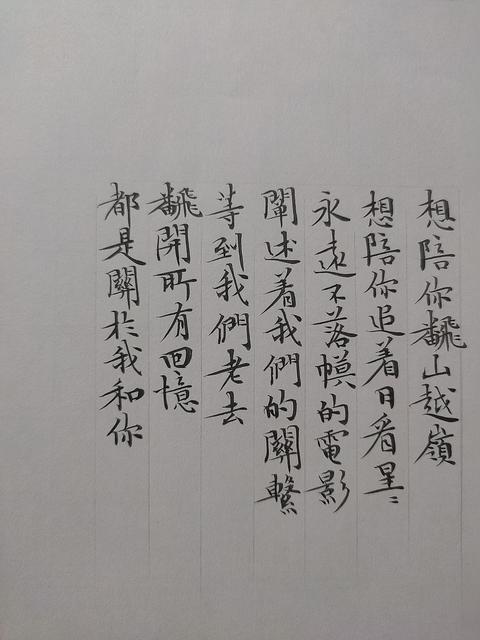 想陪你飜山越嶺
想陪你追着日看星〻
永遠不落幙的電影
闡述着我們的關繫
等到我們老去
飜開所有回憶
都是關於我和你